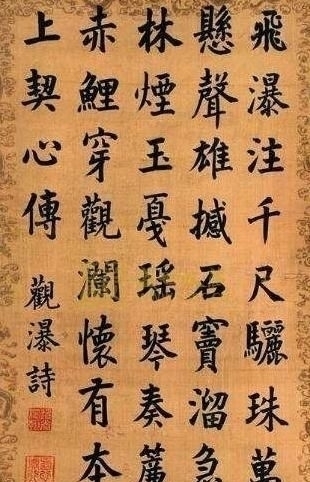 飛瀑注千尺驪珠萬
懸聲雄撼石竇溜急
林煙玉戛瑶琴奏簾
赤鯉穿觀瀾懷有本
上契心傳
觀瀑詩